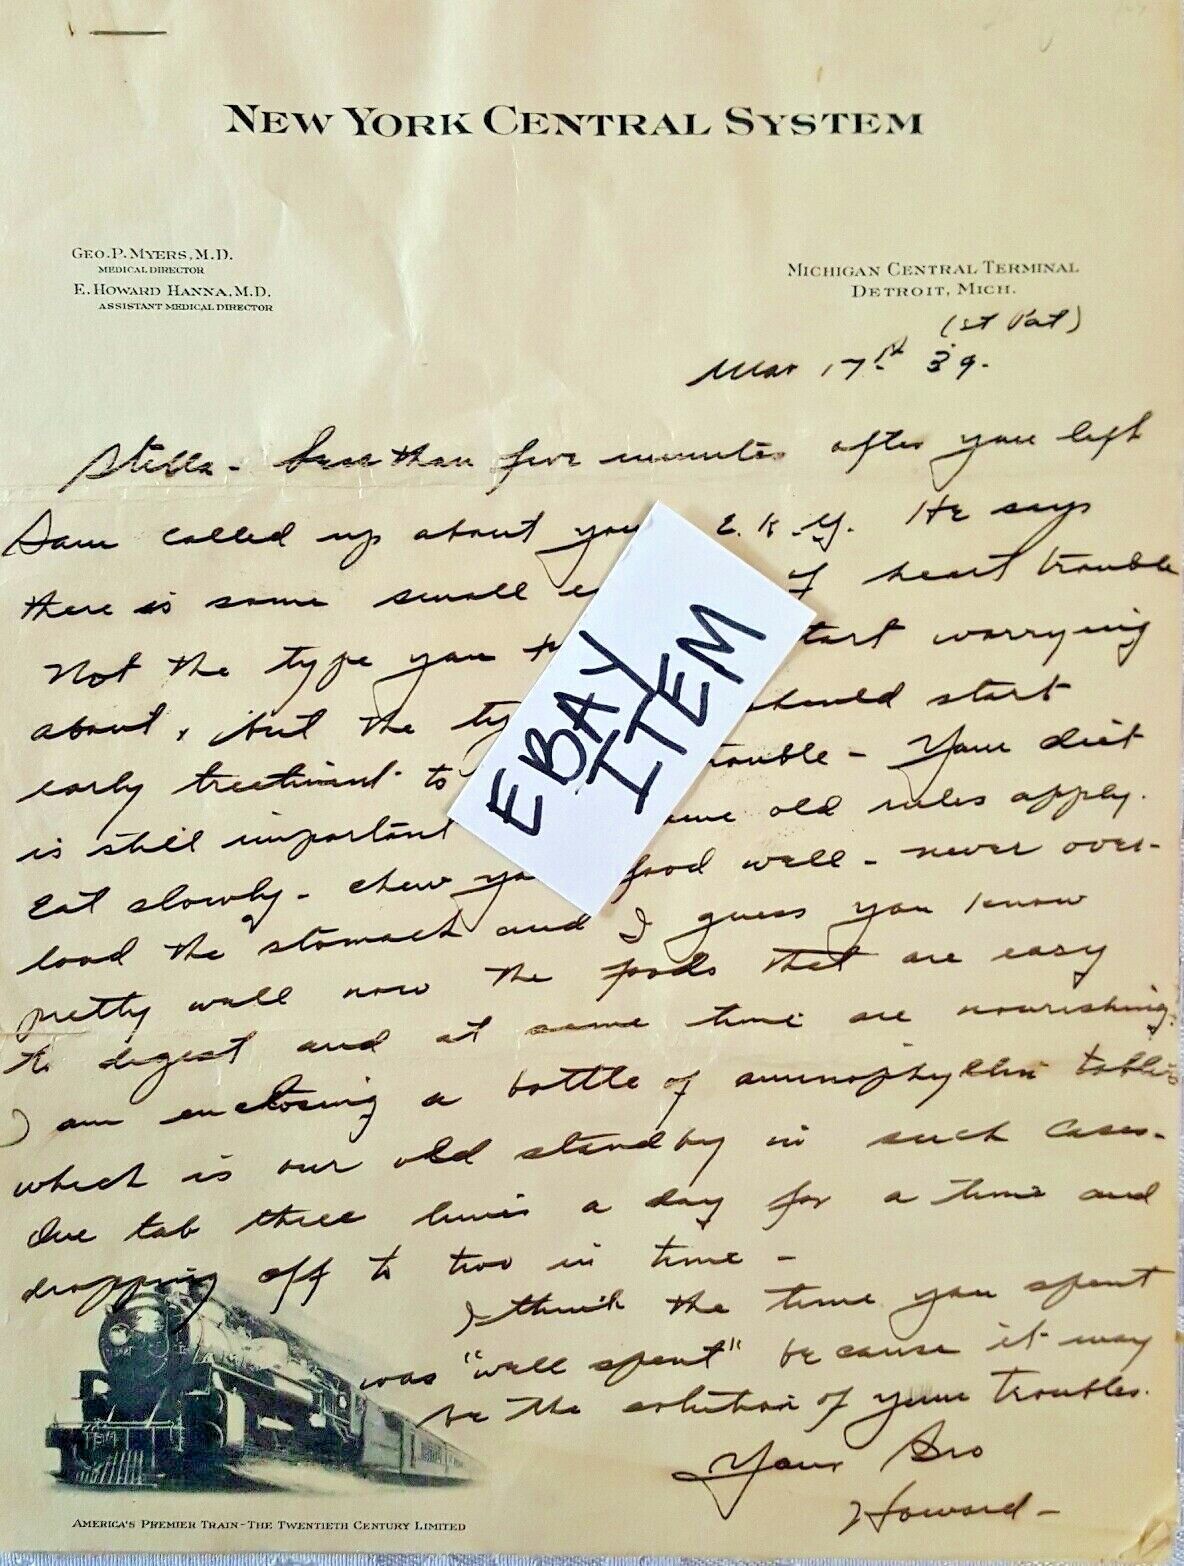 NEW YORK CENTRAL SYSTEM
GEO. P. MYERS, M.D.
MEDICAL DIRECTOR
E. HOWARD HANNA, M.D.
ASSISTANT MEDICAL DIRECTOR
MICHIGAN CENTRAL TERMINAL
DETROIT, MICH.
(St Pat)
Mar 17th 39.
Stella - Less than five minutes after you left
Sam called up about you E. K. G. He says
there is some small of heart trouble
Not the type you start worrying
about, but the should start
early treatment to trouble - Your diet
is still important old rules apply.
Eat slowly - chew food well - never over-
load the stomach and I guess you know
pretty well now the foods that are easy
to digest and at same time are nourishing.
I am enclosing a bottle of aminophyllin tablets
which is our old standby in such cases -
One tab three times a day for a time and
dropping off to two in time -
I think the time you spent
was "well spent" because it may
be the solution of your troubles.
Your Bro
Howard -
EBAY
ITEM
AMERICA'S PREMIER TRAIN - THE TWENTIETH CENTURY LIMITED